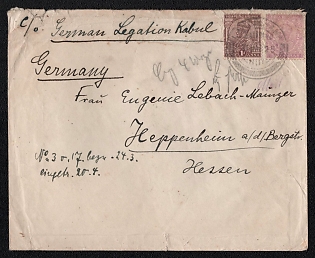 c/o. German Legation Kabul
Germany
Frau Eugenie Lebach-Mainzer
Heppenheim a/d/Bergstr.
Hessen
No 3 v. 17. begr. - 24.3.
eingetr. 20.4.